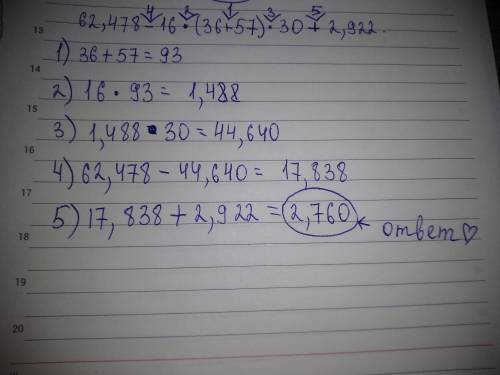 4 2 1 3 5
62,478 − 16 • (36+57) • 30 + 2,922.
13
1) 36 + 57 = 93
14
2) 16 • 93 = 1,488
15
3) 1,488 • 30 = 44,640
16
4) 62,478 − 44,640 = 17,838
17
5) 17,838 + 2,922 = 2,760 ← ответ♡
18
19
20